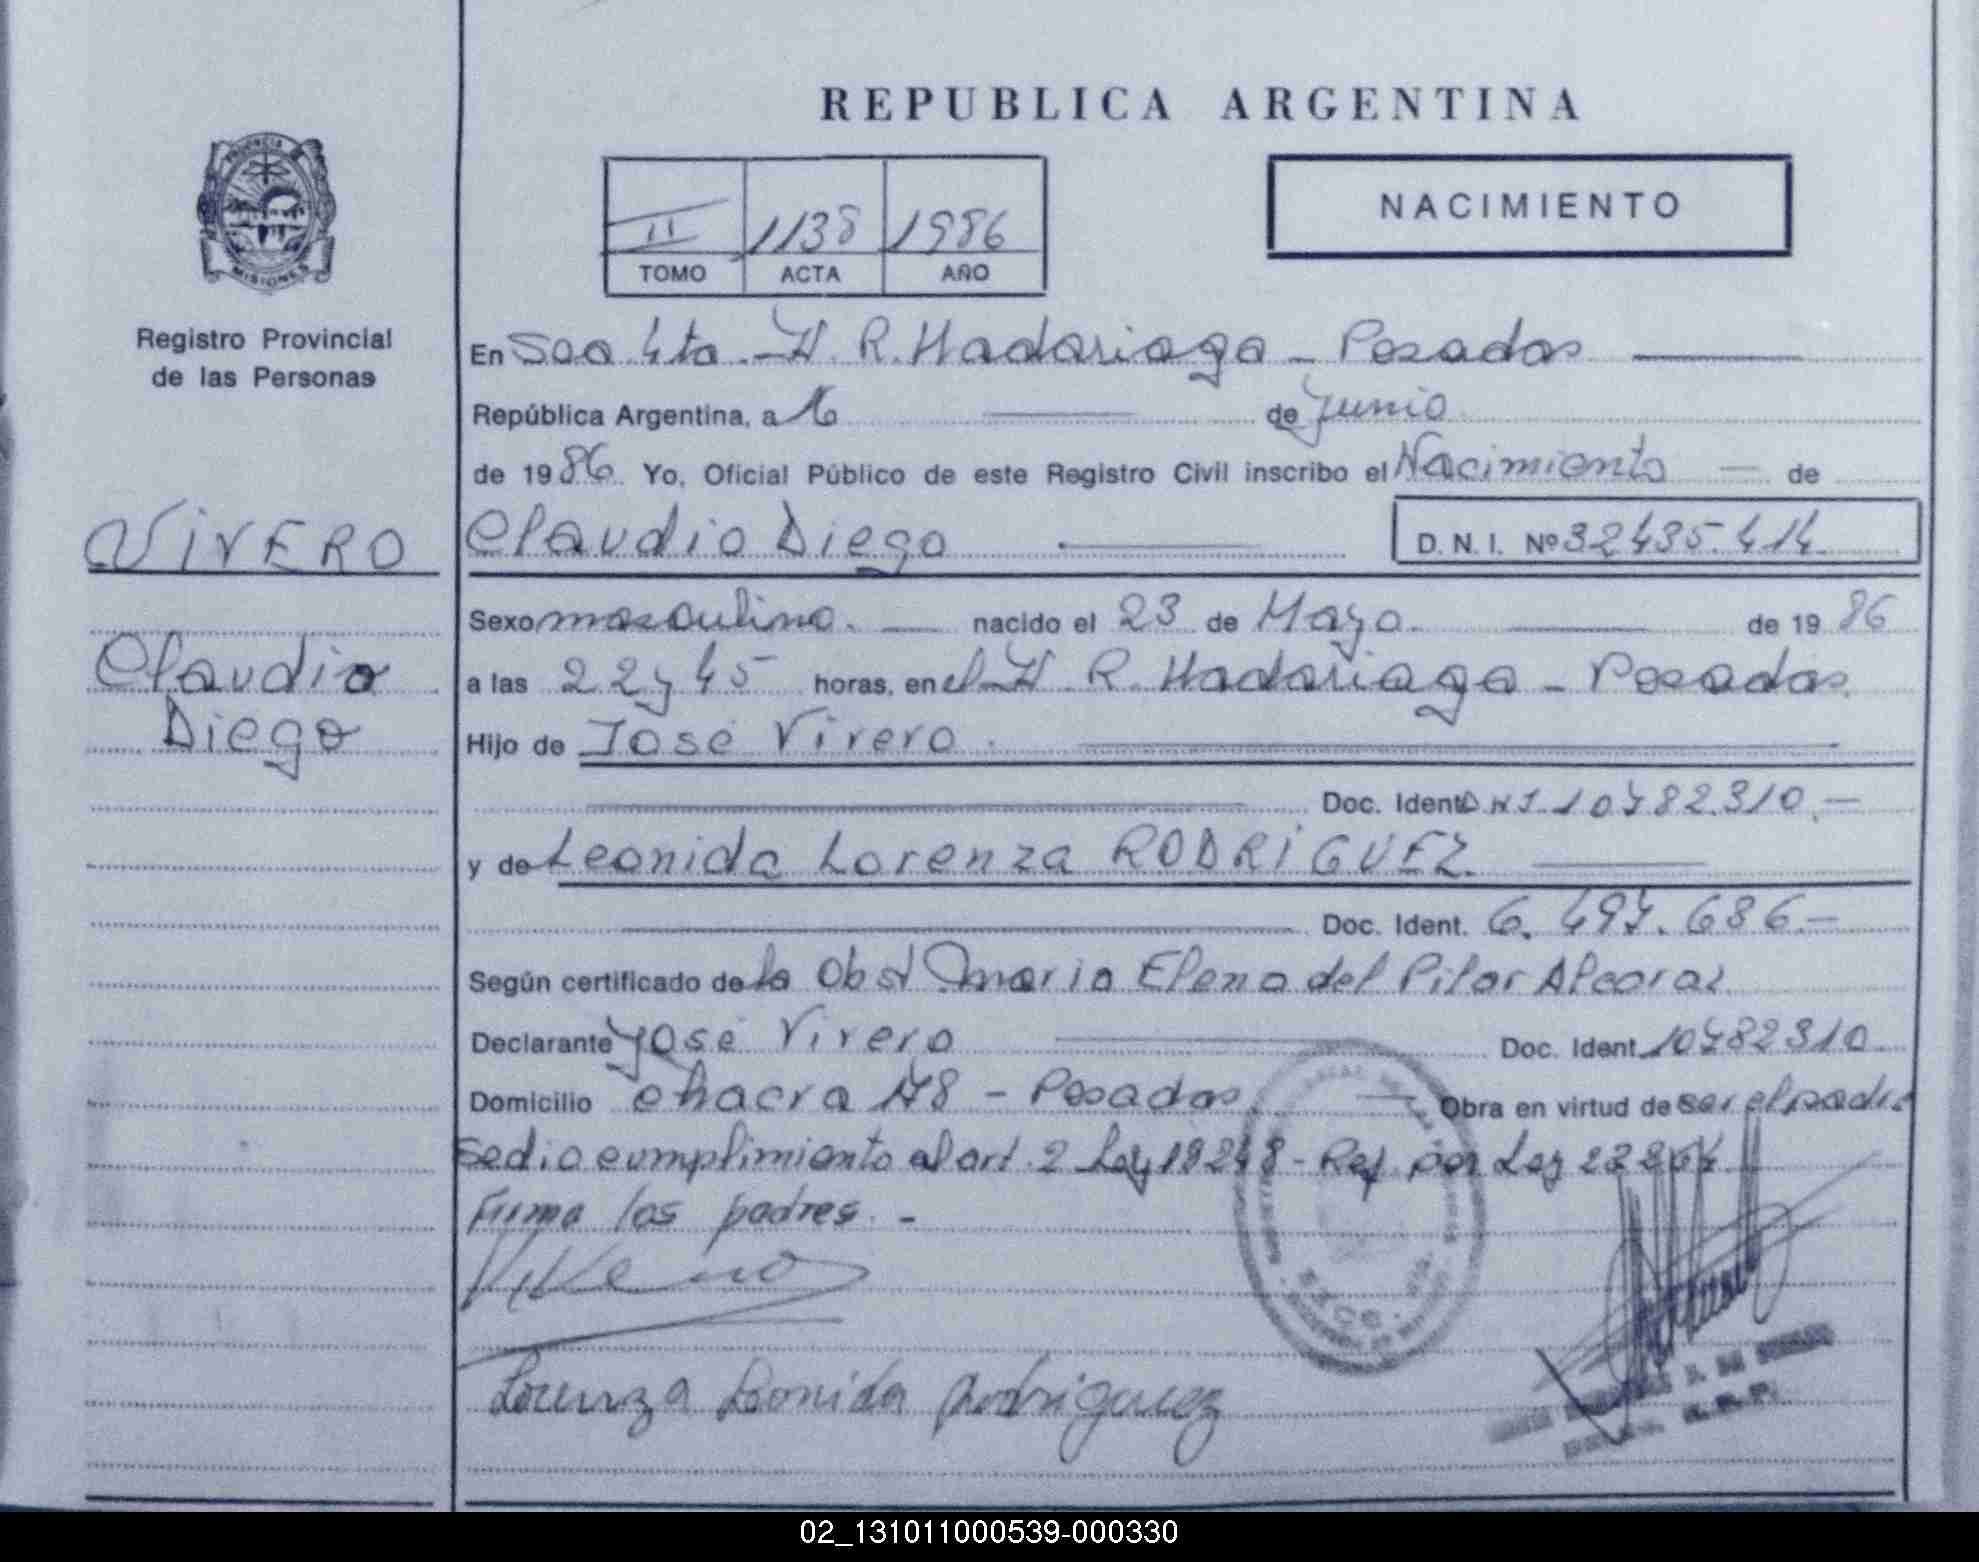 REPUBLICA ARGENTINA
PROVINCIA DE
MISIONES
Registro Provincial
de las Personas
II 1138 1986
TOMO ACTA AÑO
NACIMIENTO
En Sec 4ta - H. R. Madariaga - Posadas
República Argentina, a 16 de Junio
de 1986 Yo, Oficial Público de este Registro Civil inscribo el Nacimiento de
VIVERO
Claudio Diego D. N. I. Nº 32435.414
Claudio
Diego
Sexo masculino. nacido el 23 de Mayo. de 1986
a las 22 y 45 horas, en el H. R. Madariaga - Posadas.
Hijo de José Vivero.
Doc. Ident. DNI 10782.310.-
y de Leonida Lorenza RODRIGUEZ.
Doc. Ident. 6.497.686.-
Según certificado de la Obst Maria Elena del Pilar Alcaraz
Declarante José Vivero Doc. Ident. 10782310
Domicilio chacra 178 - Posadas Obra en virtud de ser el padre
se dio cumplimiento al art. 2 Ley 18248 - Ref. por Ley
Firma los padres. -
Vivero
Lorenza Leonida Rodriguez
02_131011000539-000330